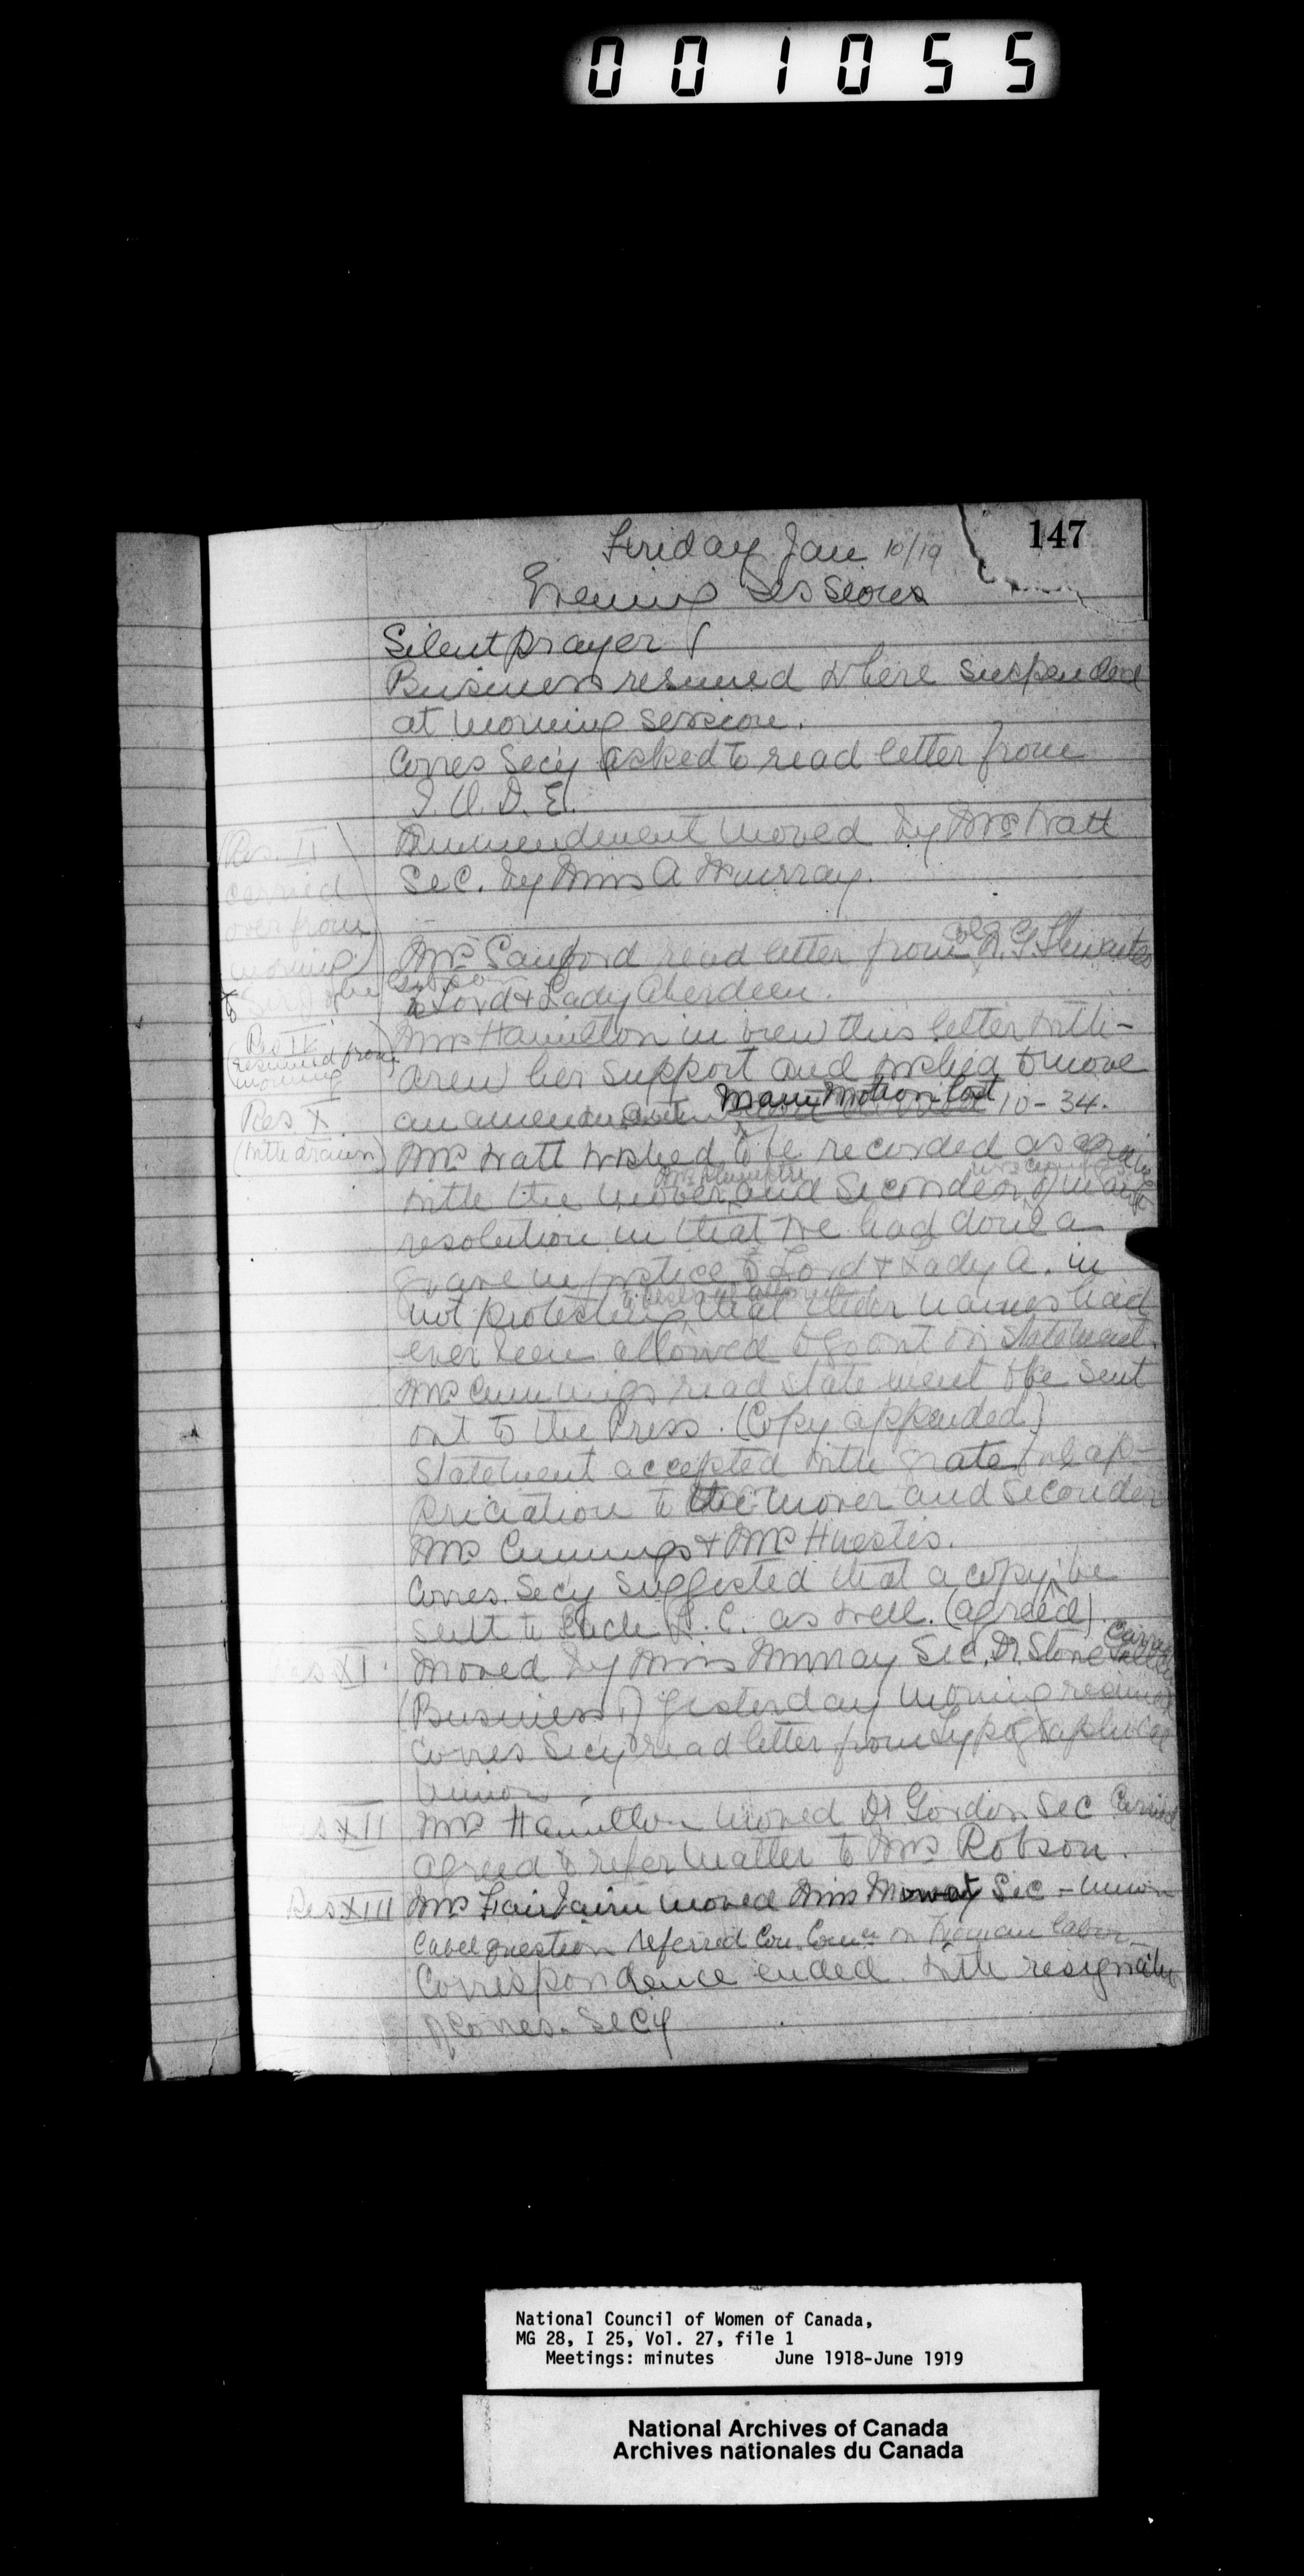 001055
147
Friday Jan 10/19
Evening Session
Silent prayer
Business resumed where suspended
at morning session.
Corres Secy asked to read letter from
I. O. D. E.
Ammendment moved by Mrs Watt
Sec. by Miss A Murray.
(Res. II
carried
over from
morning)
Mrs Sanford read letter from
to Lord & Lady Aberdeen.
(Res IX
resumed from
morning
Mrs Hamilton in view this letter with-
drew her support and wished to move
Res X
(withdrawn)
an amendment Main Motion lost 10-34.
Mrs Watt wished to be recorded as
with the mover and seconder of
resolution in that we had done a
grave injustice to Lord & Lady A. in
not protesting that their names had
ever been allowed to go out on statement.
Mrs Cummings read statement to be sent
out to the Press. (Copy appended)
Statement accepted with grateful ap-
preciation to the mover and seconder
Mrs Cummings & Mrs Huestis.
Corres. Secy suggested that a copy be
sent to each L. C. as well. (agreed)
Res XI. Moved by Miss Murray Sec. Dr. Stone Carried
(Business of yesterday morning resumed
Corres Secy read letter from Typographical
Union.
Res XII Mrs Hamilton moved Dr Gordon Sec Carried
agreed to refer matter to Mrs Robson.
Res XIII Mrs Fairbairn moved Miss Mowat Sec - Union
Label question referred Con. Com. on Woman labor-
Correspondence ended with resignation
of Corres. Secy
National Council of Women of Canada,
MG 28, I 25, Vol. 27, file 1
Meetings: minutes June 1918-June 1919
National Archives of Canada
Archives nationales du Canada